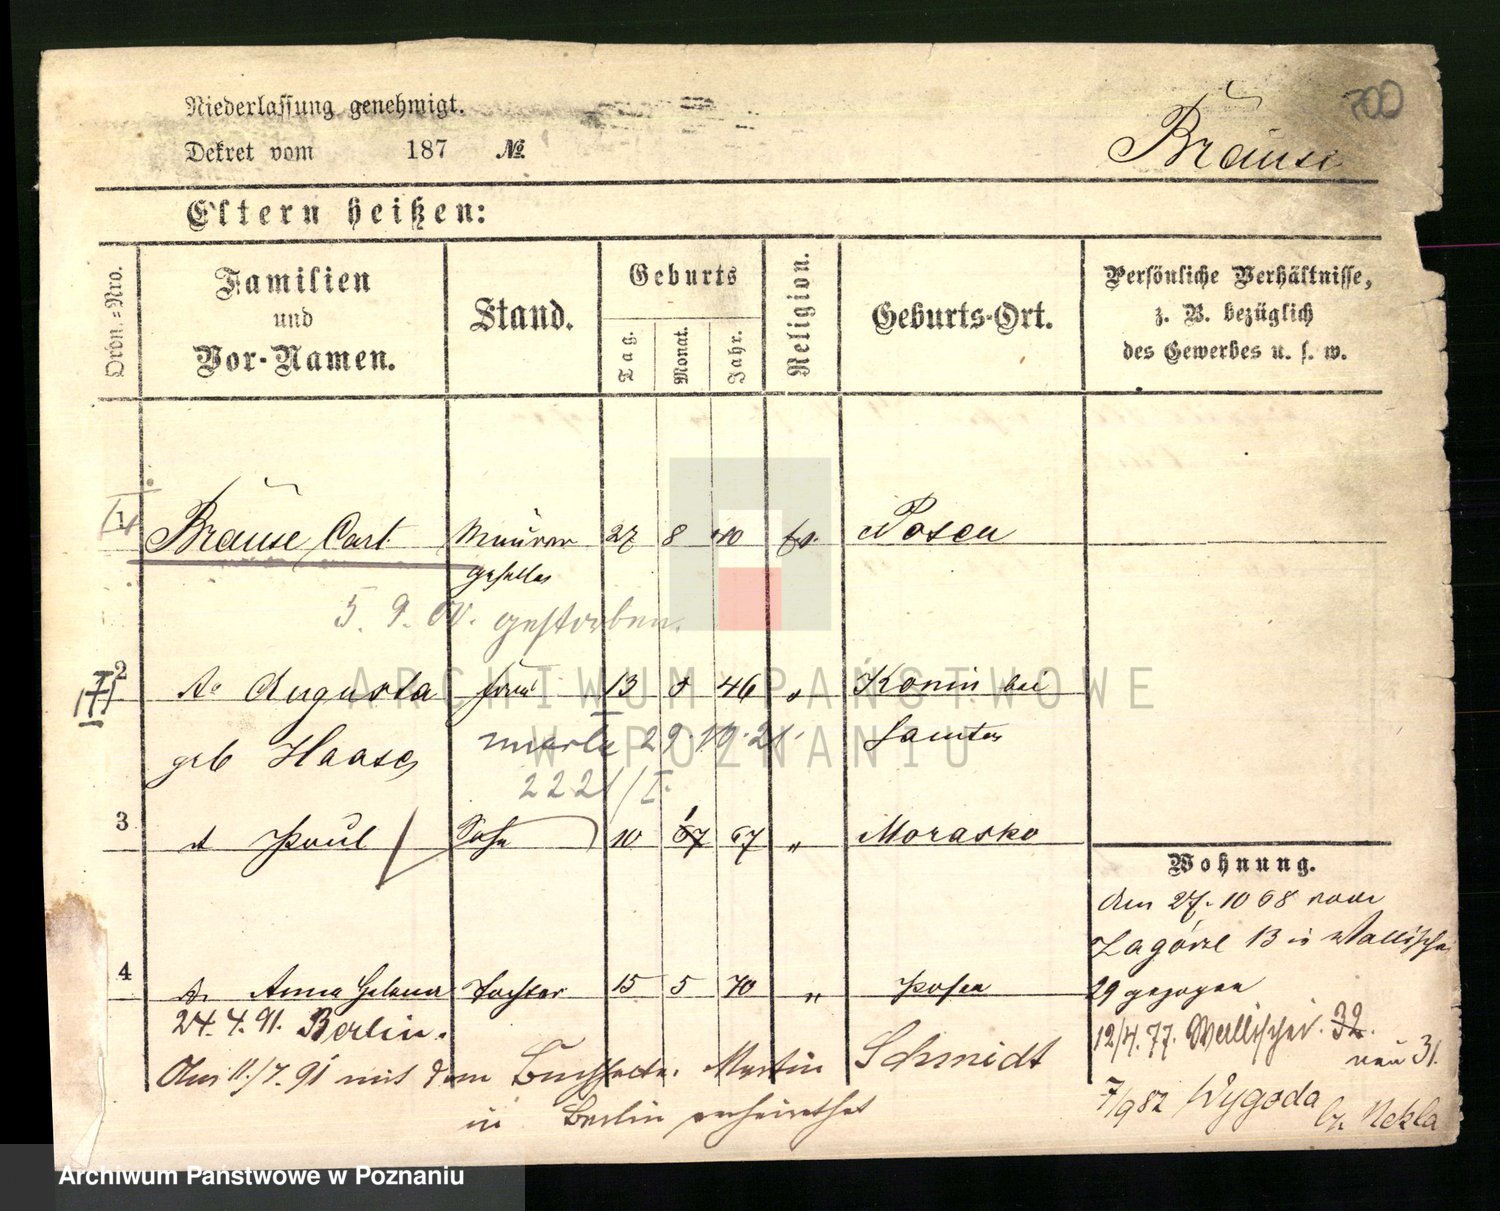 Niederlassung genehmigt.
Dekret vom 187 №
700
Brause
Eltern heißen:
Ordn.-Nro.
Familien und Vor-Namen.
Stand.
Geburts
Tag.
Monat.
Jahr.
Religion.
Geburts-Ort.
Persönliche Verhältnisse, z. B. bezüglich des Gewerbes u. s. w.
1 Brause Carl Maurer 27 8 40 ev. Posen
geselle
5. 9. 00. gestorben.
2 Augusta Frau 13 8 46 " Konin bei
geb Haase umarła 29.10.21. Samter
2221/I.
3 Paul Sohn 10 1 67 " Morasko
Wohnung.
den 27.10 68 von
Zagórze 13 in Wallischei
4 Anna Helena Tochter 15 5 70 " Posen 29 gezogen
24.4.91. Berlin.
12/4.77. Wallischei. 32.
neu 31.
Am 11./7.91 mit dem Buchhalter Martin Schmidt
in Berlin verheirathet
7/9 82 Wygoda bei Nekla
ARCHIWUM PAŃSTWOWE
W POZNANIU
Archiwum Państwowe w Poznaniu